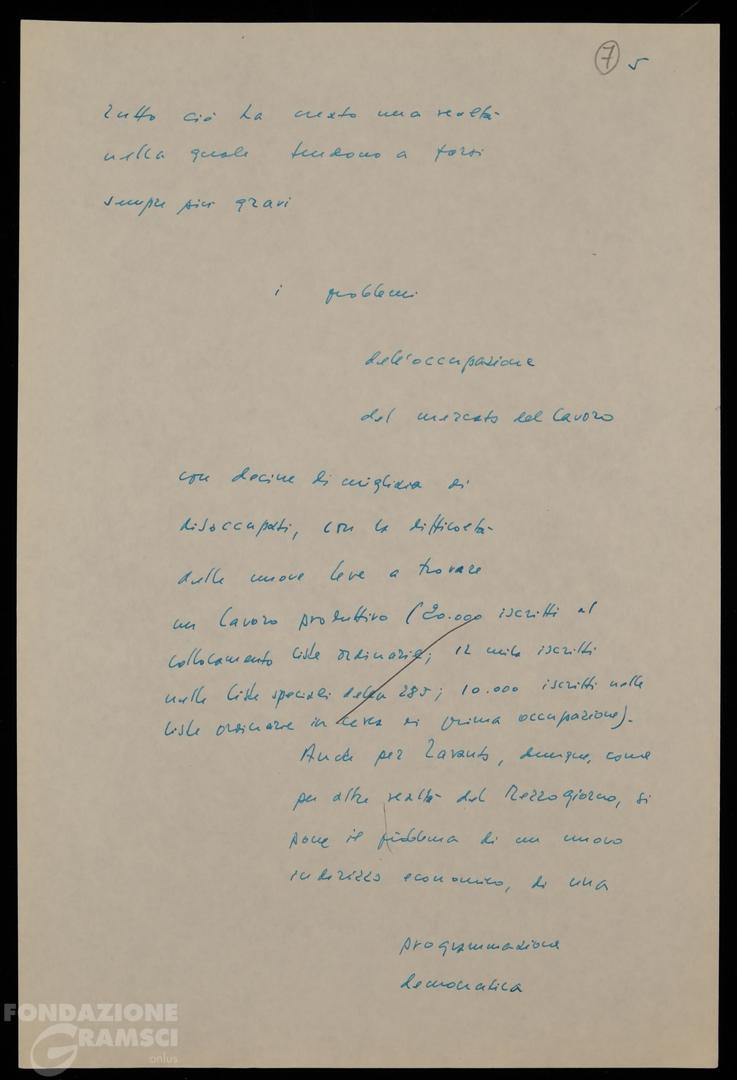 7 5
Tutto ciò ha creato una realtà
nella quale tendono a farsi
sempre più gravi
i problemi
dell'occupazione
del mercato del lavoro
con decine di migliaia di
disoccupati, con la difficoltà
delle nuove leve a trovare
un lavoro produttivo (20.000 iscritti al
collocamento liste ordinarie; 12 mila iscritti
nelle liste speciali della 285; 10.000 iscritti nelle
liste ordinarie in cerca di prima occupazione).
Anche per Taranto, dunque, come
per altre realtà del Mezzogiorno, si
pone il problema di un nuovo
indirizzo economico, di una
programmazione
democratica
FONDAZIONE
GRAMSCI
onlus